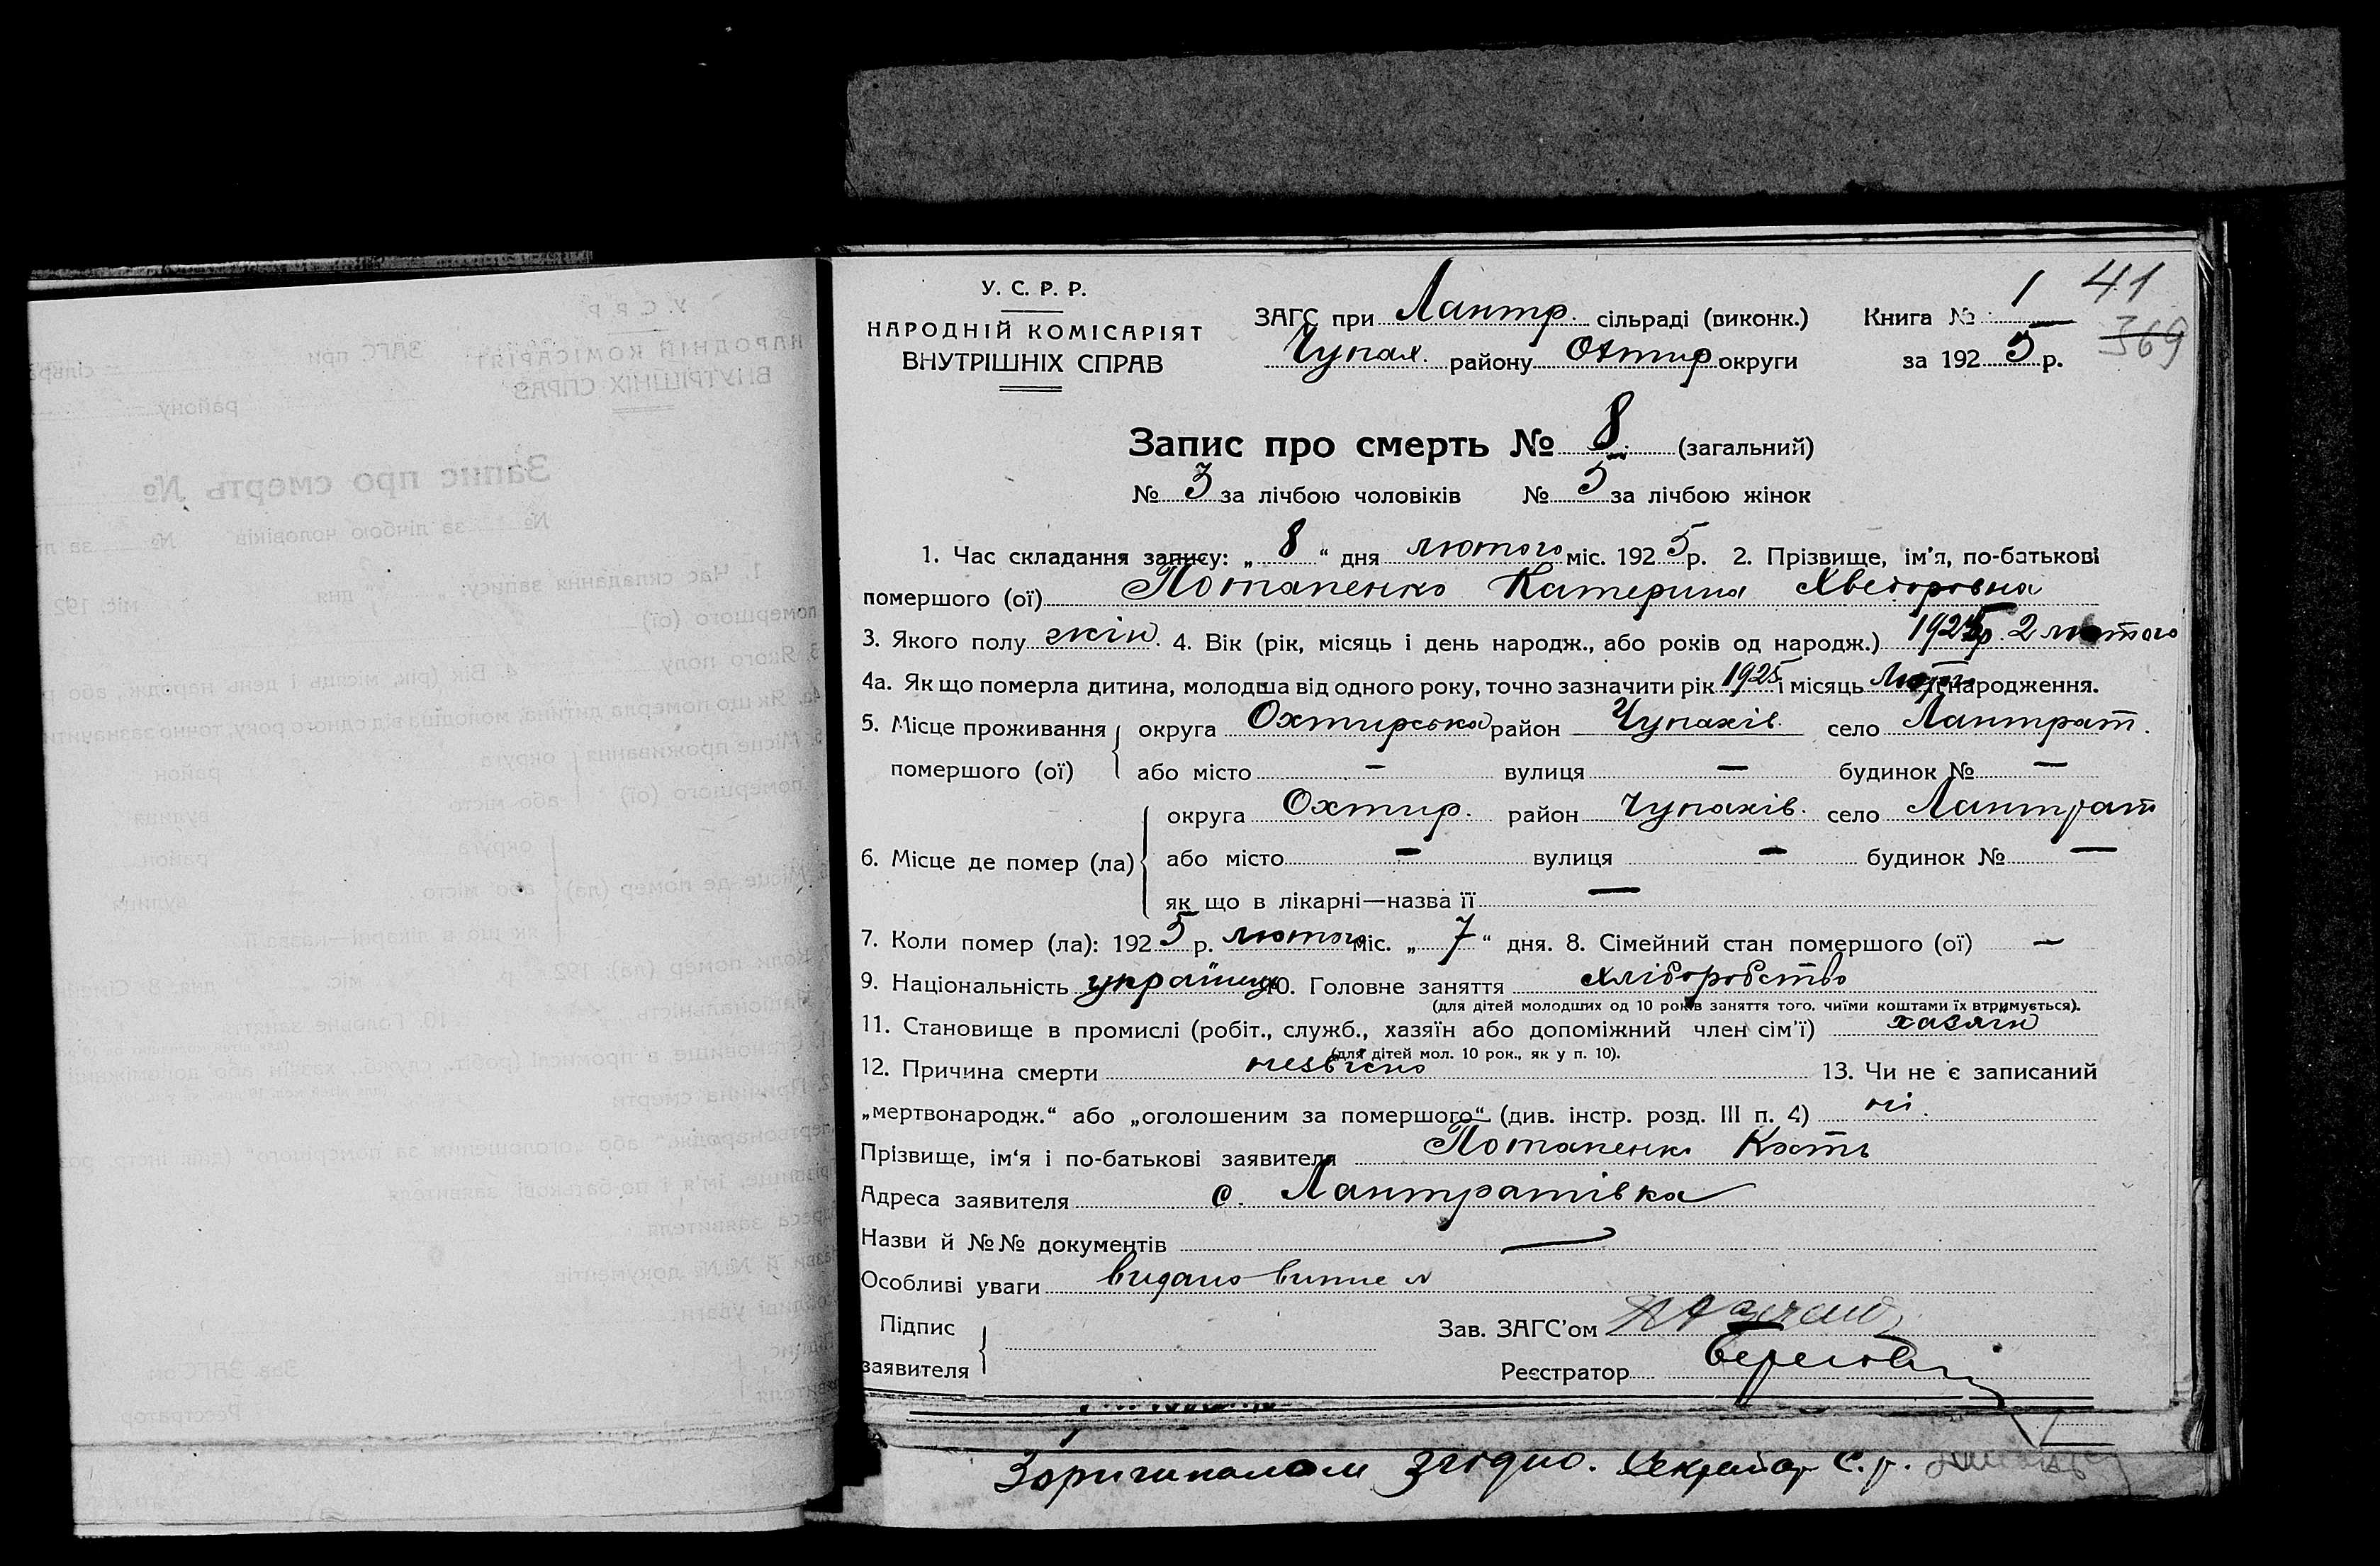 У. С. Р. Р.
НАРОДНІЙ КОМІСАРІЯТ
ВНУТРІШНІХ СПРАВ
ЗАГС при Лантр. сільраді (виконк.)
Чупах. району Охтир округи
Книга № 1
за 1925 р.
41
369
Запис про смерть № 8 (загальний)
№ 3 за лічбою чоловіків № 5 за лічбою жінок
1. Час складання запису: „ 8 “ дня лютого міс. 1925 р. 2. Прізвище, ім’я, по-батькові
помершого (ої) Потапенко Катерина Хведоровна
3. Якого полу жін. 4. Вік (рік, місяць і день народж., або років од народж.) 1925р. 2 лютого
4а. Як що померла дитина, молодша від одного року, точно зазначити рік 1925 і місяць її народження.
5. Місце проживання округа Охтирська район Чупахів. село Лантрат.
помершого (ої) або місто — вулиця — будинок № —
округа Охтир. район Чупахів. село Лантрат
6. Місце де помер (ла) або місто — вулиця — будинок № —
як що в лікарні—назва її —
7. Коли помер (ла): 1925 р. лютого міс. „ 7 “ дня. 8. Сімейний стан помершого (ої) —
9. Національність україн 10. Головне заняття хліборобство
(для дітей молодших од 10 років заняття того, чиїми коштами їх втримується).
11. Становище в промислі (робіт., служб., хазяїн або допоміжний член сім’ї) хазяїн
(для дітей мол. 10 рок., як у п. 10).
12. Причина смерти 13. Чи не є записаний
„мертвонародж.“ або „оголошеним за помершого“ (див. інстр. розд. III п. 4) ні.
Прізвище, ім‘я і по-батькові заявителя Потапенко Кость
Адреса заявителя с. Лантратівка
Назви й №№ документів —
Особливі уваги видано
Підпис
заявителя
Зав. ЗАГС’ом
Реєстратор
Зоригиналом згідно. Секретар С.р.